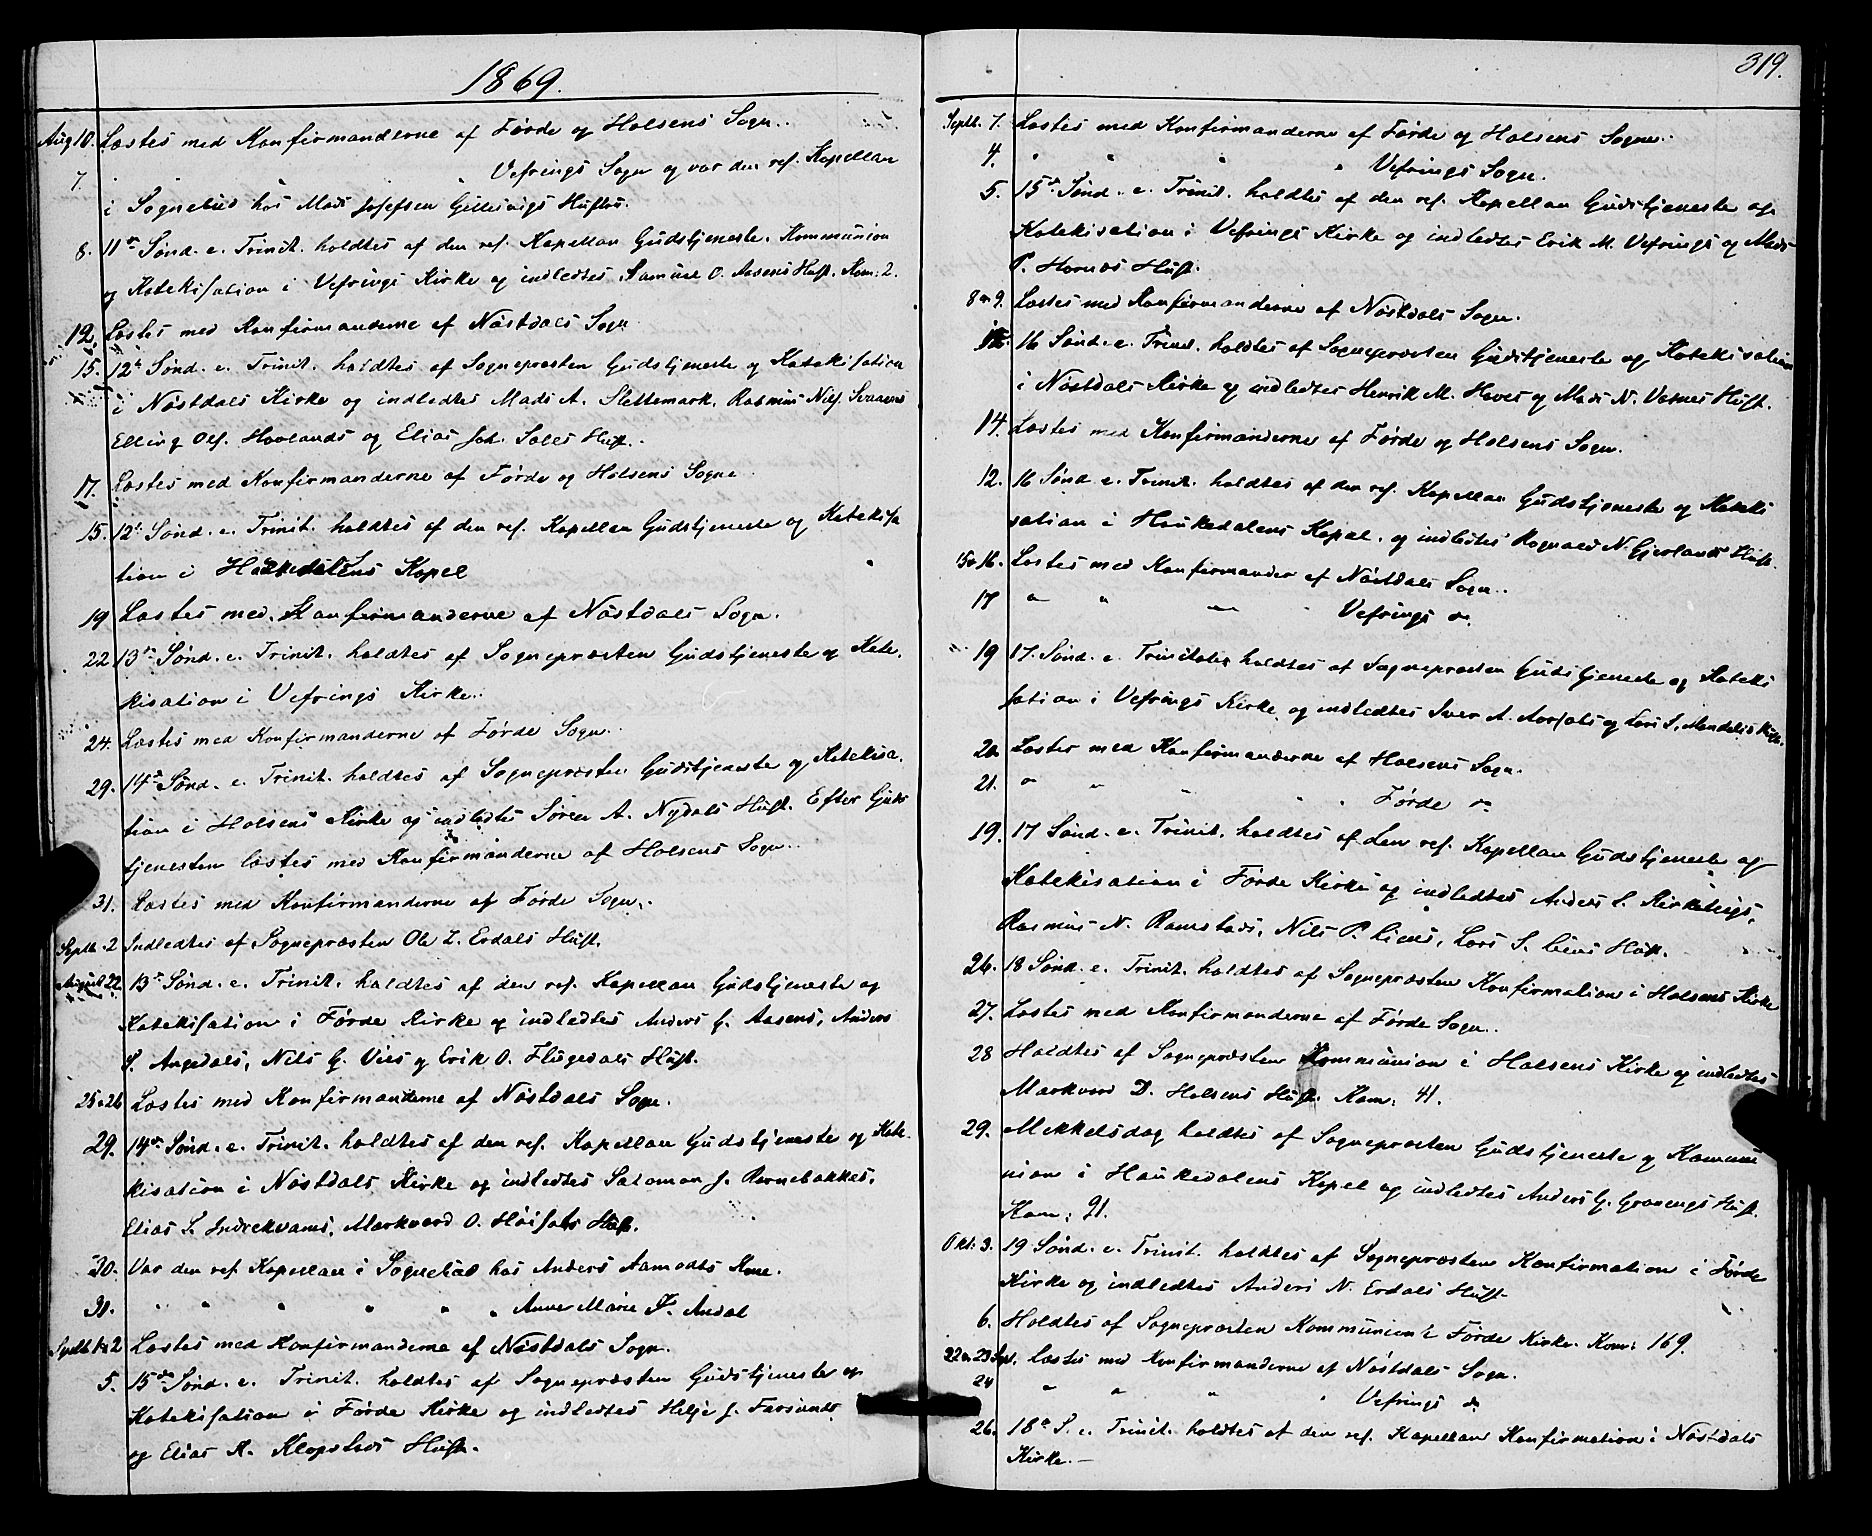 1869.
Aug 10. Læstes med Konfirmanderne af Førde og Holsens Sogn.
7. " " " Vefrings Sogn og var den res. Kapellan
i Sognebud hos Mads Josefsen Gjellesvigs Hustru.
8. 11te Sønd. e. Trinit. holdtes af den res. Kapellan Gudstjeneste, Kommunion
og Katekisation i Vefrings Kirke og indledtes Samuel O. Aasens Hust. Kom: 2.
12. Læstes med Konfirmanderne af Nøstdals Sogn
15. 12te Sønd. e. Trinit. holdtes af Sognepræsten Gudstjeneste og Katekisation
i Nøstdals Kirke og indledtes Mads A. Slettemark, Rasmus Nils
Elling Ols. Hovlands og Elias Joh. Solls Hust.
17. Læstes med Konfirmanderne af Førde og Holsens Sogne
15. 12te Sønd. e. Trinit. holdtes af den res. Kapellan Gudstjeneste og Katekisa
tion i Haukedalens Kapel
19 Læstes med Konfirmanderne af Nøstdals Sogn.
22 13te Sønd. e. Trinit. holdtes af Sognepræsten Gudstjeneste og Kate-
kisation i Vefrings Kirke.
24. Læstes med Konfirmanderne af Førde Sogn.
29. 14de Sønd. e. Trinit. holdtes af Sognepræsten Gudstjeneste og Katekisa-
tion i Holsens Kirke og indledtes Søren A. Nydals Hust. Efter Guds
tjenesten læstes med Konfirmanderne af Holsens Sogn.
31. Læstes med Konfirmanderne af Førde Sogn.
Septb. 2 Indledtes af Sognepræsten Ole Z. Erdals Hust.
August 22 13de Sønd. e. Trinit. holdtes af den res. Kapellan Gudstjeneste og
Katekisation i Førde Kirke og indledtes Anders G. Aasens, Anders
S. Angedals, Nils G. Vies og Erik O. Flugedals Hust.
25 & 26 Læstes med Konfirmanderne af Nøstdals Sogn.
29. 14de Sønd. e. Trinit. holdtes af den res. Kapellan Gudstjeneste og Kate-
kisation i Nøstdals Kirke og indledtes Salomon J. Rørnebakkas,
Elias L. Indrekvams, Markvard O. Høisæts Hust.
30. Var den res. Kapellan i Sognebud hos Anders Aamodts Kone.
31. " " " " " " Anne Marie J. Andal
Septb 1 & 2 Læstes med Konfirmanderne af Nøstdals Sogn.
5. 15de Sønd. e. Trinit. holdtes af Sognepræsten Gudstjeneste og
Katekisation i Førde Kirke og indledtes Helje J. Farsunds
og Elias A. Klopstads Hust.
319.
Septb. 7. Læstes med Konfirmanderne af Førde og Holsens Sogne.
4. " " " " Vefrings Sogn.
5. 15de Sønd. e. Trinit. holdtes af den res. Kapellan Gudstjeneste og
Katekisation i Vefrings Kirke og indledtes Erik M. Vefrings og Mads
P. Hornæs Hust.
8 & 9. Læstes med Konfirmanderne af Nøstdals Sogn.
12. 16 Sønd. e. Trinit. holdtes af Sognepræsten Gudstjeneste og Katekisation
i Nøstdals Kirke og indledtes Henrik M. Hoves og Mads N. Vasnes Hust.
14. Læstes med Konfirmanderne af Førde og Holsens Sogn.
12. 16 Sønd. e. Trinit. holdtes af den res. Kapellan Gudstjeneste og Kateki
sation i Haukedalens Kapel, og indledtes Rognald N. Gjerlands Hust.
15 & 16. Læstes med Konfirmander af Nøstdals Sogn.
17 " " " " Vefrings do.
19 17. Sønd. e. Trinitatis holdtes af Sognepræsten Gudstjeneste og Kateki
sation i Vefrings Kirke og indledtes Iver A. Aarsæts og Lars S. Mendals Hust.
20. Læstes med Konfirmanderne af Holsens Sogn.
21. " " " " Førde do
19. 17 Sønd. e. Trinit. holdtes af den res. Kapellan Gudstjeneste og
Katekisation i Førde Kirke og indledtes Anders L. Kirketeigs,
Rasmus N. Ramstads, Nils P. Liens, Lars S. Liens Hust.
26. 18 Sønd. e. Trinit. holdtes af Sognepræsten Konfirmation i Holsens Kirke
27. Læstes med Konfirmanderne af Førde Sogn.
28 Holdtes af Sognepræsten Kommunion i Holsens Kirke og indledtes
Markvard D. Holsens Hust. Kom: 41.
29. Mikkelsdag holdtes af Sognepræsten Gudstjeneste og Kommu
nion i Haukedalens Kapel og indledtes Anders G. Grønengs Hust.
Kom: 91.
Okt: 3. 19 Sønd. e. Trinit. holdtes af Sognepræsten Konfirmation i Førde
Kirke og indledtes Anders N. Erdals Hust.
6. Holdtes af Sognepræsten Kommunion i Førde Kirke. Kom: 169.
22 & 23 Sept. Læstes med Konfirmanderne af Nøstdals Sogn.
24 " " " " Vefrings do
26. 18de S. e. Trinit. holdtes af den res. Kapellan Konfirmation i Nøstdals
Kirke.—